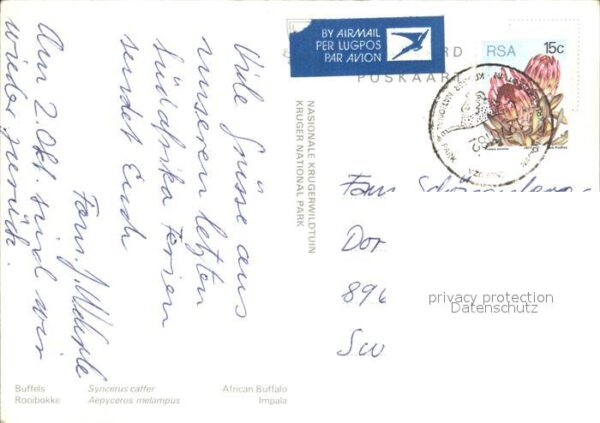 Viele Grüsse aus
unseren letzten
Südafrika Ferien
sendet Euch
Fam. J.
Am 2. Okt. sind wir
wieder zurück.
BY AIRMAIL
PER LUGPOS
PAR AVION
POSKAART
RSA 15c
NASIONALE KRUGERWILDTUIN
KRUGER NATIONAL PARK
Fam.
Dor
896
Sw
privacy protection
Datenschutz
Buffels Syncerus caffer African Buffalo
Rooibokke Aepyceros melampus Impala